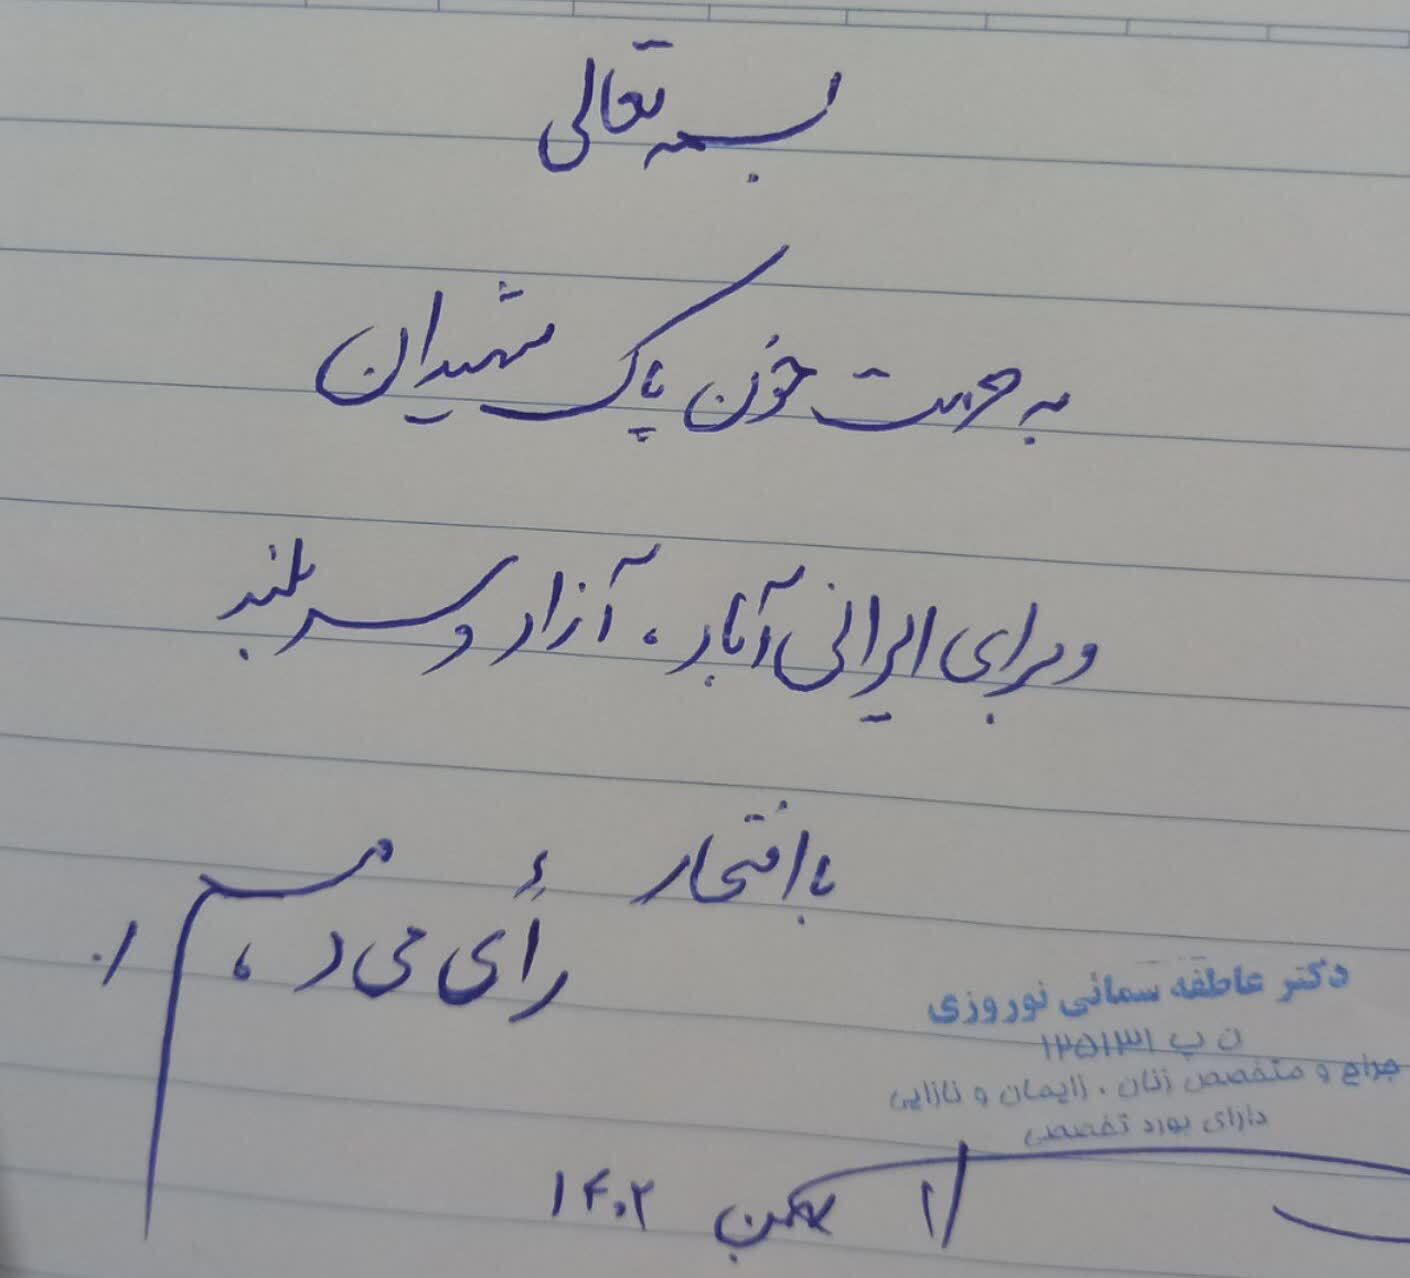 بسمه تعالی
به حرمت خون پاک شهیدان
و برای ایرانی آباد، آزاد و سربلند
با افتخار
رأی می دهم.
دکتر عاطفه سمائی نوروزی
ن پ ۱۲۵۱۳۱
جراح و متخصص زنان ، زایمان و نازایی
دارای بورد تخصصی
بهمن ۱۴۰۲